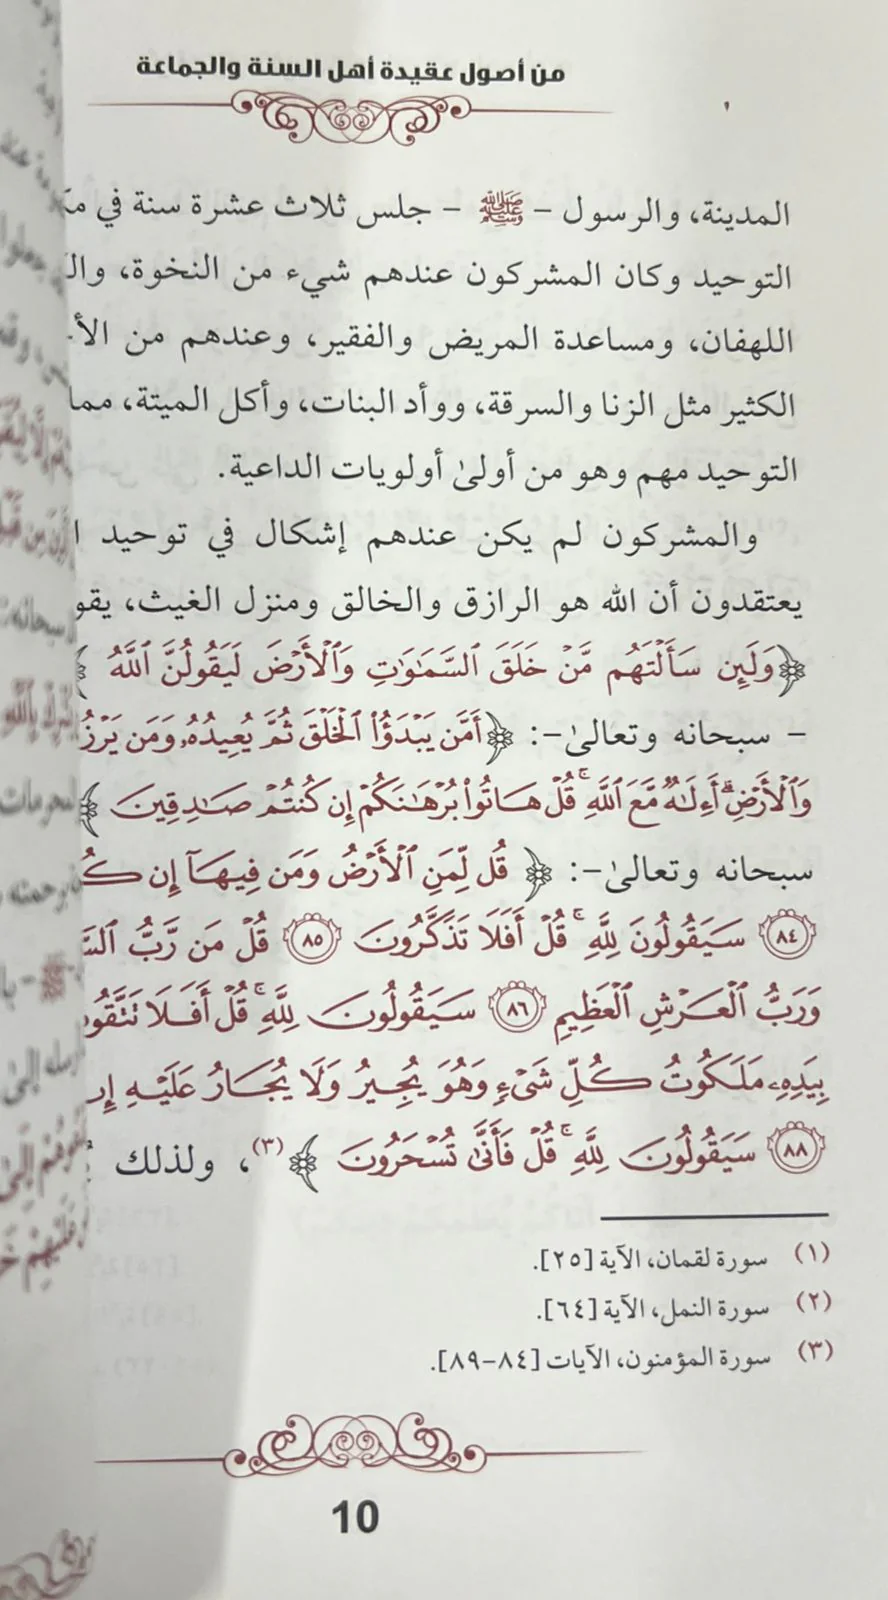 من أصول عقيدة أهل السنة والجماعة
المدينة، والرسول - ﷺ - جلس ثلاث عشرة سنة في
التوحيد وكان المشركون عندهم شيء من النخوة،
اللهفان، ومساعدة المريض والفقير، وعندهم من
الكثير مثل الزنا والسرقة، ووأد البنات، وأكل الميتة، مما
التوحيد مهم وهو من أولىٰ أولويات الداعية.
والمشركون لم يكن عندهم إشكال في توحيد
يعتقدون أن الله هو الرازق والخالق ومنزل الغيث،
﴿وَلَئِن سَأَلْتَهُم مَّنْ خَلَقَ ٱلسَّمَٰوَٰتِ وَٱلْأَرْضَ لَيَقُولُنَّ ٱللَّهُ ﴾
- سبحانه وتعالىٰ-: ﴿أَمَّن يَبْدَؤُا۟ ٱلْخَلْقَ ثُمَّ يُعِيدُهُۥ وَمَن
وَٱلْأَرْضِ ۗ أَءِلَٰهٌ مَّعَ ٱللَّهِ ۚ قُلْ هَاتُوا۟ بُرْهَٰنَكُمْ إِن كُنتُمْ صَٰدِقِينَ ﴾
سبحانه وتعالىٰ-: ﴿ قُل لِّمَنِ ٱلْأَرْضُ وَمَن فِيهَآ إِن
٨٤ سَيَقُولُونَ لِلَّهِ ۚ قُلْ أَفَلَا تَذَكَّرُونَ ٨٥ قُلْ مَن رَّبُّ
وَرَبُّ ٱلْعَرْشِ ٱلْعَظِيمِ ٨٦ سَيَقُولُونَ لِلَّهِ ۚ قُلْ أَفَلَا
بِيَدِهِۦ مَلَكُوتُ كُلِّ شَىْءٍ وَهُوَ يُجِيرُ وَلَا يُجَارُ عَلَيْهِ
٨٨ سَيَقُولُونَ لِلَّهِ ۚ قُلْ فَأَنَّىٰ تُسْحَرُونَ ﴾(٣)، ولذلك
(١) سورة لقمان، الآية [٢٥].
(٢) سورة النمل، الآية [٦٤].
(٣) سورة المؤمنون، الآيات [٨٤-٨٩].
10